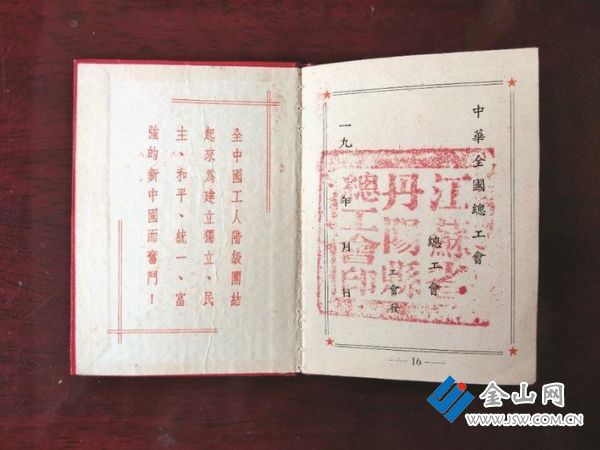 全中國工人階級團結
起來爲建立獨立、民
主、和平、統一、富
強的新中國而奮鬥！
中華全國總工會
總工會
工會發
一九 年 月 日
江蘇省
丹陽縣
總工會印
— 16 —
金山网
WWW.JSW.COM.CN